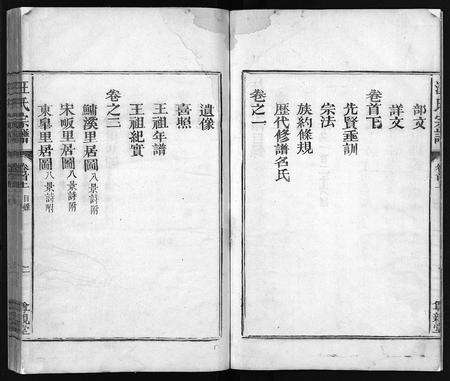 部文
詳文
卷首下
先賢垂訓
宗法
族約條規
歷代修譜名氏
卷之一
遺像
王祖年譜
王祖紀實
卷之二
鱅溪里居圖八景詩附
宋畈里居圖八景詩附
東皐里居圖八景詩附
汪氏宗譜
卷首上
目錄
二